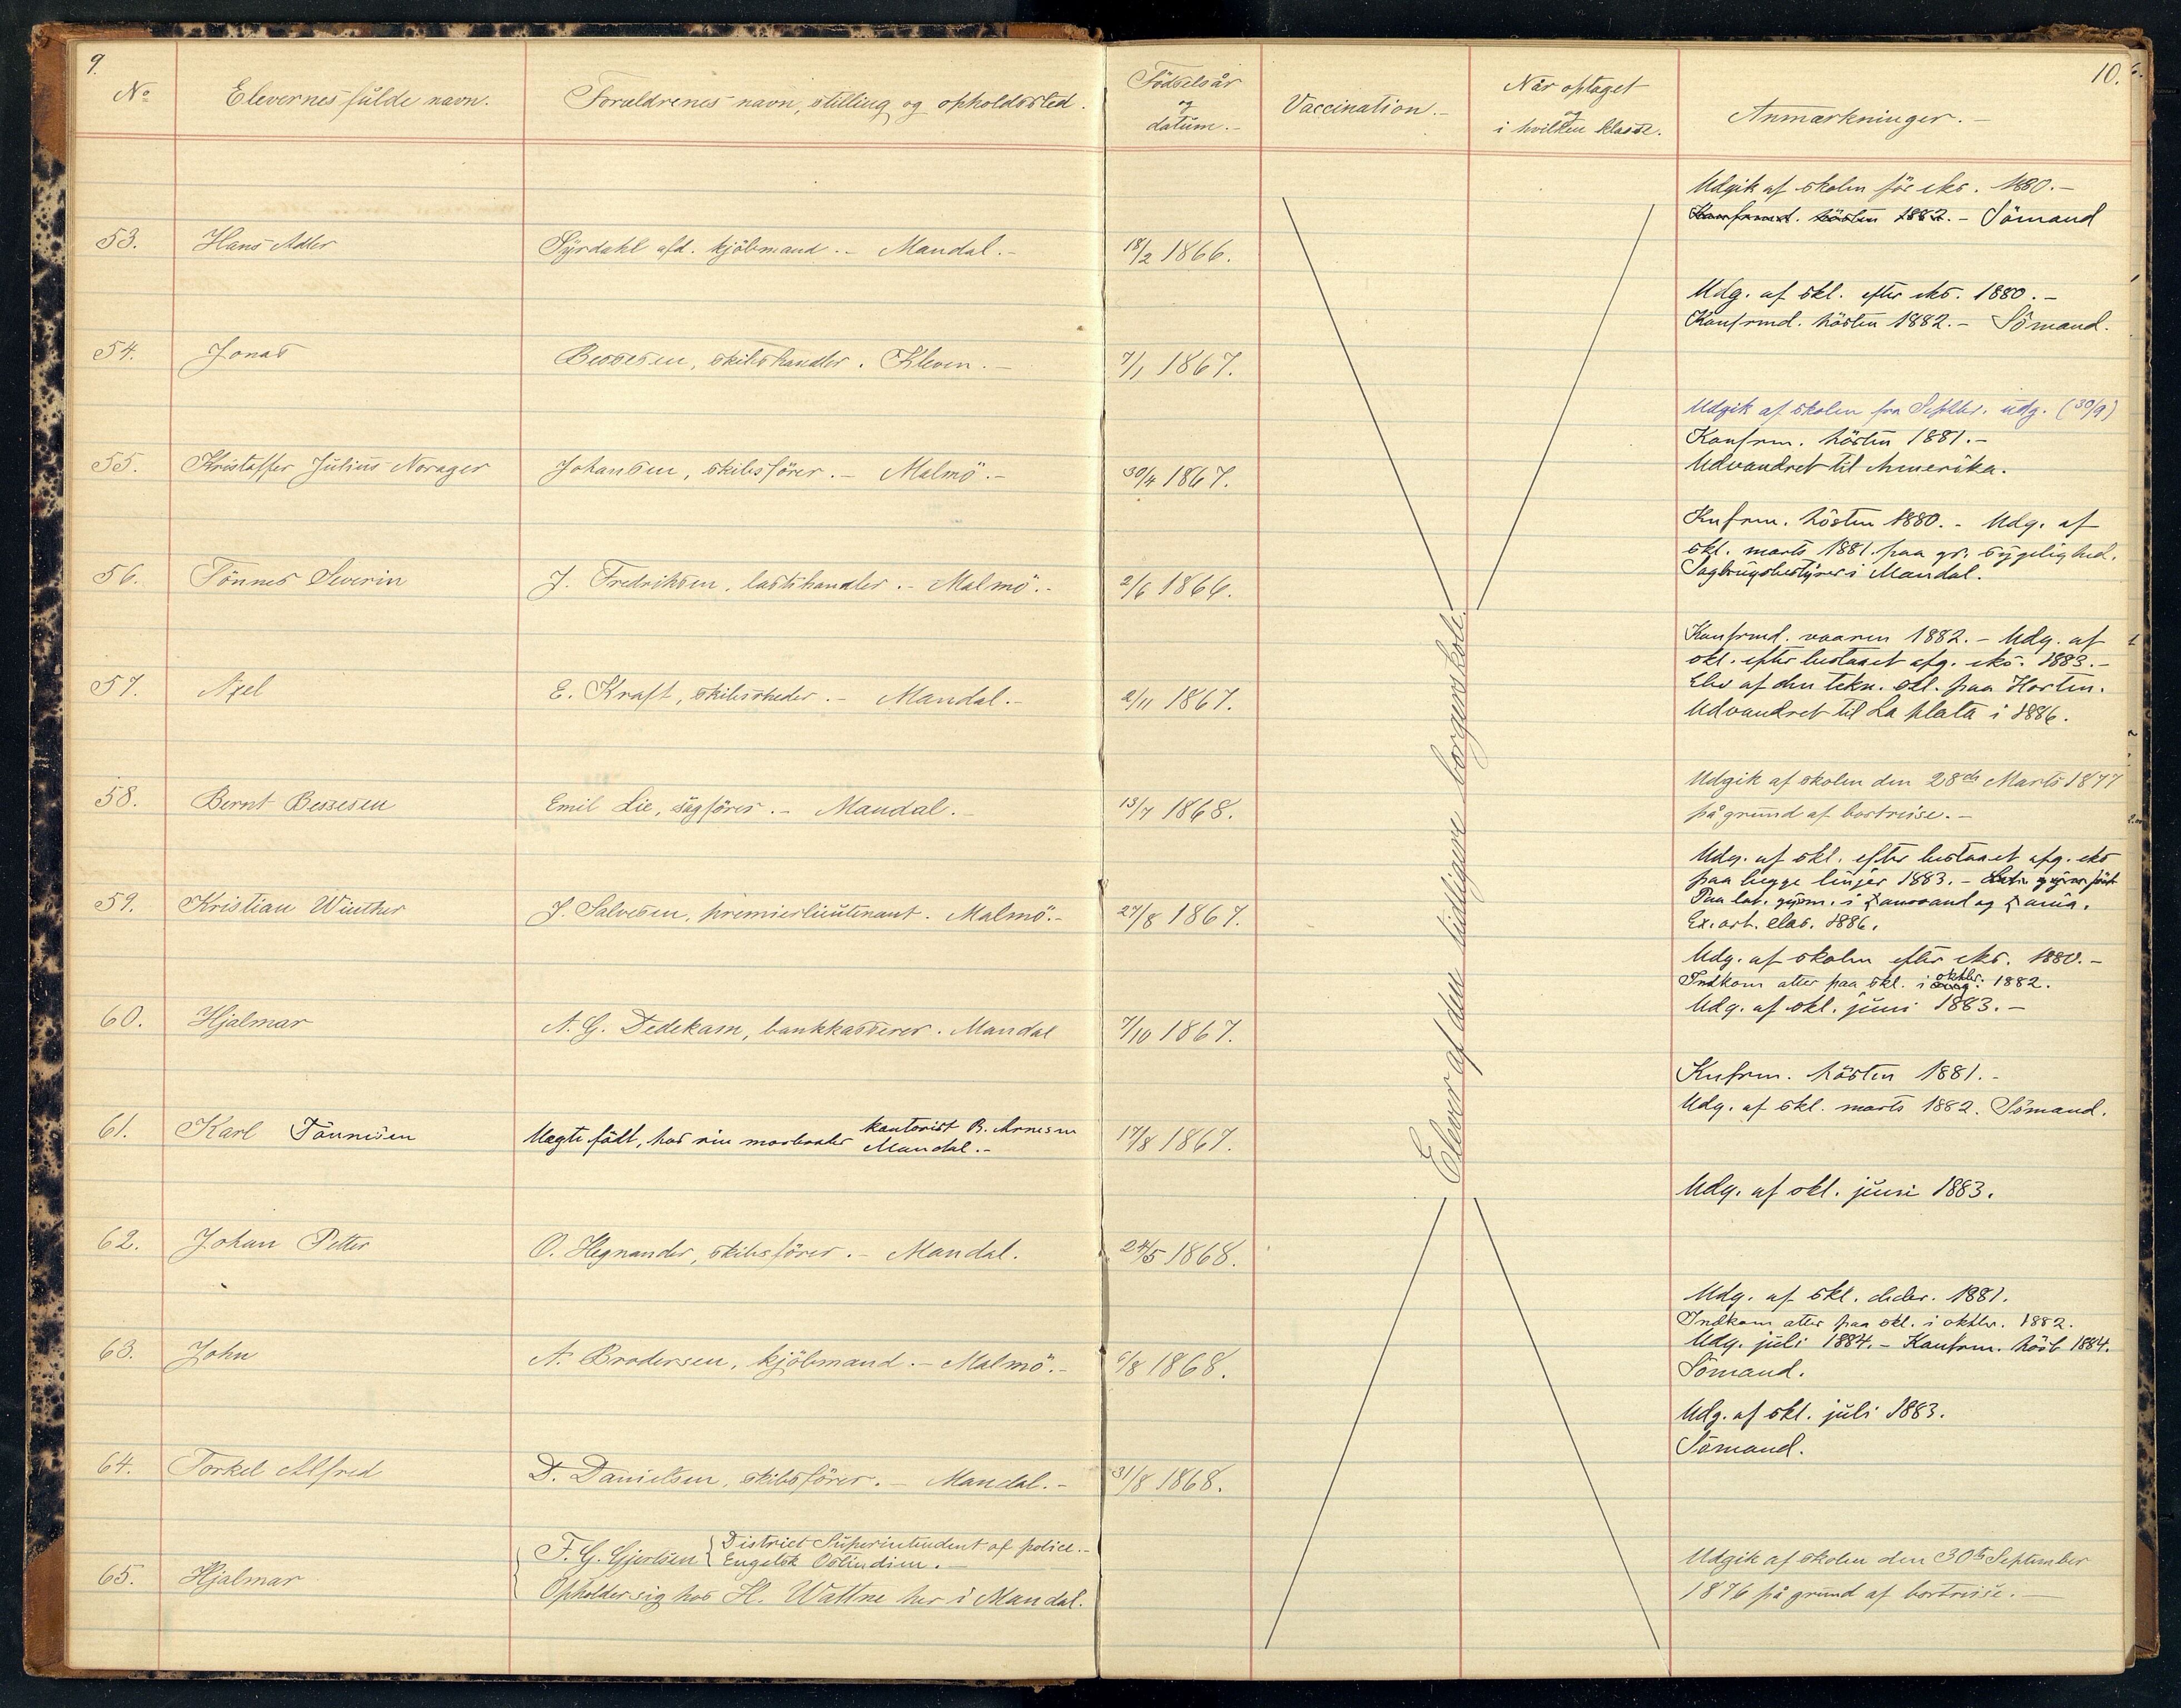 9.
No
Elevernes fulde navn.
Forældrenes navn, stilling og opholdssted.
Födselsår
og
datum.-
Vaccination.-
Når optaget
og
i hvilken klasse.
10.
Anmærkninger.-
Udgik af skolen för eks. 1880.-
Konfirmt. hösten 1882.- Sömand
53. Hans Adler
Syrdahl afd. kjöbmand.- Mandal.-
18/2 1866.
Udg. af skl. efter eks. 1880.-
Konfrmd. hösten 1882.- Sömand.
54. Jonas
Bessesen, skibshandler. Kleven.-
7/1 1867.
Udgik af skolen fra Septbr. udg. (30/9)
Konfrm. hösten 1881.-
55. Kristoffer Julius Norager
Johansen, skibsförer.- Malmö.-
30/4 1867.
Udvandret til Amerika.
Knfrm. hösten 1880.- Udg. af
skl. marts 1881. paa gr. sygelighed.
Sagbrugsbestyrer i Mandal.
56. Tönnes Severin
J. Fredriksen, lasthandler.- Malmö.-
2/6 1866.
Konfrmd. vaaren 1882.- Udg. af
skl. efter bestaaet afg. eks. 1883.-
Elev af den tekn. skl. paa Horten.
57. Axel
E. Kraft, skibsreder.- Mandal.-
2/11 1867.
Udvandret til La plata i 1886.
Elever af den tidligere borgerskole.
Udgik af skolen den 28de Marts 1877
58. Bernt Bessesen
Emil Lie, sagförer.- Mandal.-
13/7 1868.
på grund af bortreise.-
Udg. af skl. efter bestaaet afg. eks
paa begge linjer 1883.-
Paa lat. gymn. i
Ex. art. 1886.
59. Kristian Winther
J. Salvesen, premierlieutenant. Malmö.-
27/8 1867.
Udg. af skolen efter eks. 1880.-
Indkom atter paa skl. i oktbr. 1882.
Udg. af skl. juni 1883.-
60. Hjalmar
A. G. Dedekam, bankkasserer. Mandal
7/10 1867.
Knfrm. hösten 1881.-
Udg. af skl. marts 1882. Sömand.
61. Karl Tönnesen
Uægte födt, hos sin morbroder kontorist B. Arnesen
Mandal.-
17/8 1867.
Udg. af skl. juni 1883.
62. Johan Petter
O. Hegnander, skibsförer.- Mandal.
24/5 1868.
Udg. af skl. decbr. 1881.
Indkom atter paa skl. i oktbr. 1882.
Udg. juli 1884.- Konfrm. höst 1884.
Sömand.
63. John
A. Brodersen, kjöbmand.- Malmö.-
6/8 1868.
Udg. af skl. juli 1883.
Sömand.
64. Torkel Alfred
D. Danielsen, skibsförer.- Mandal.-
31/8 1868.
65. Hjalmar
F. G. Gjertsen { District Superintendent of police.-
Engelsk Ostindien.-
Opholder sig hos H. Wattne her i Mandal.
Udgik af skolen den 30te September
1876 på grund af bortreise.-